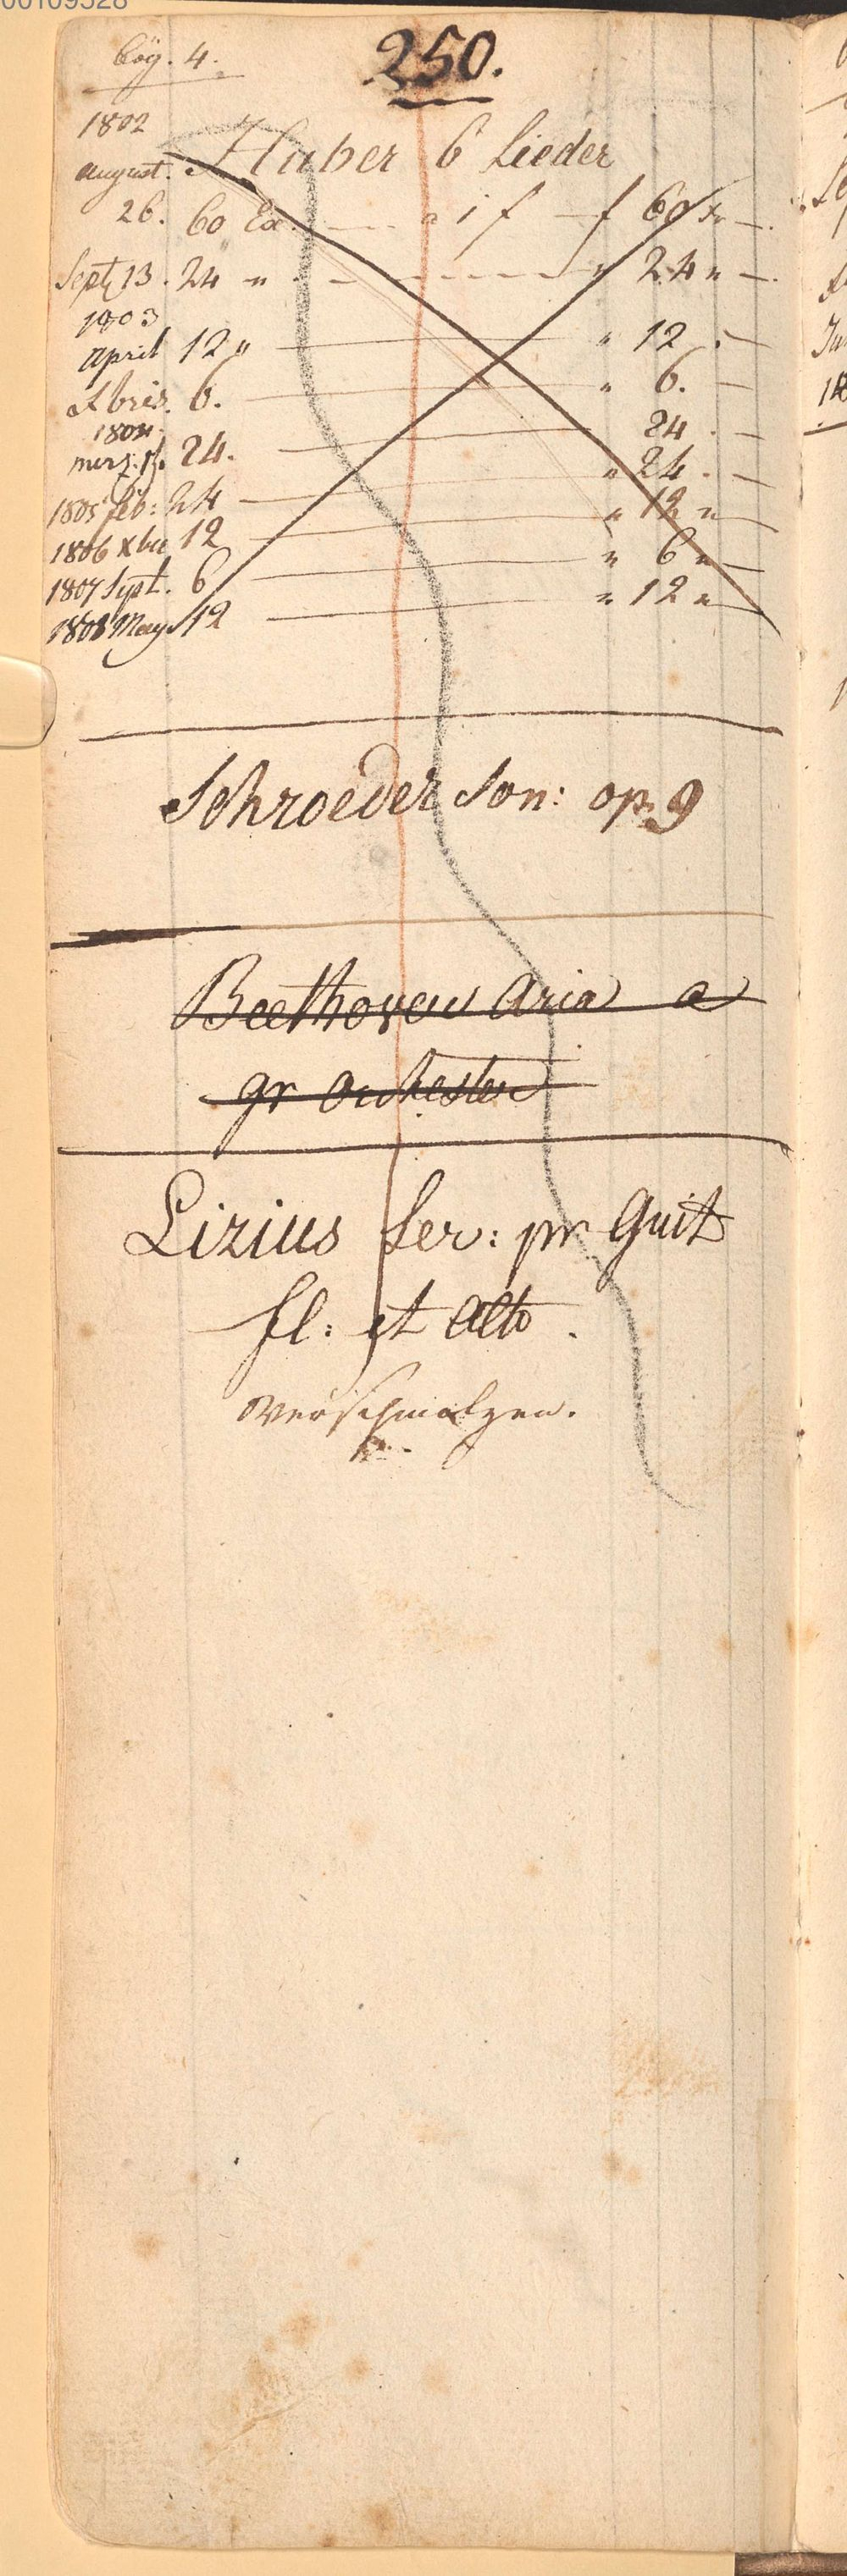 00109528
250.
1802
Huber 6 Lieder
august.
26. 60 Ex. a 1 f f 60
Sept 13. 24 " " 24 " —
1803
April 12 " " 12 . —
6. " 6. —
1804.
merz 24. 24 . —
1805 feb: 24 " 24 . —
1806 Xbre 12 " 12 "
1807 Sept. 6 " 6 " —
1808 May 12 " 12 "
Schroeder Son: op. 9
Beethoven Aria a
gr Orchester
Lizius Ser: pr Guit
fl: et Alto .
Verschmolzen.